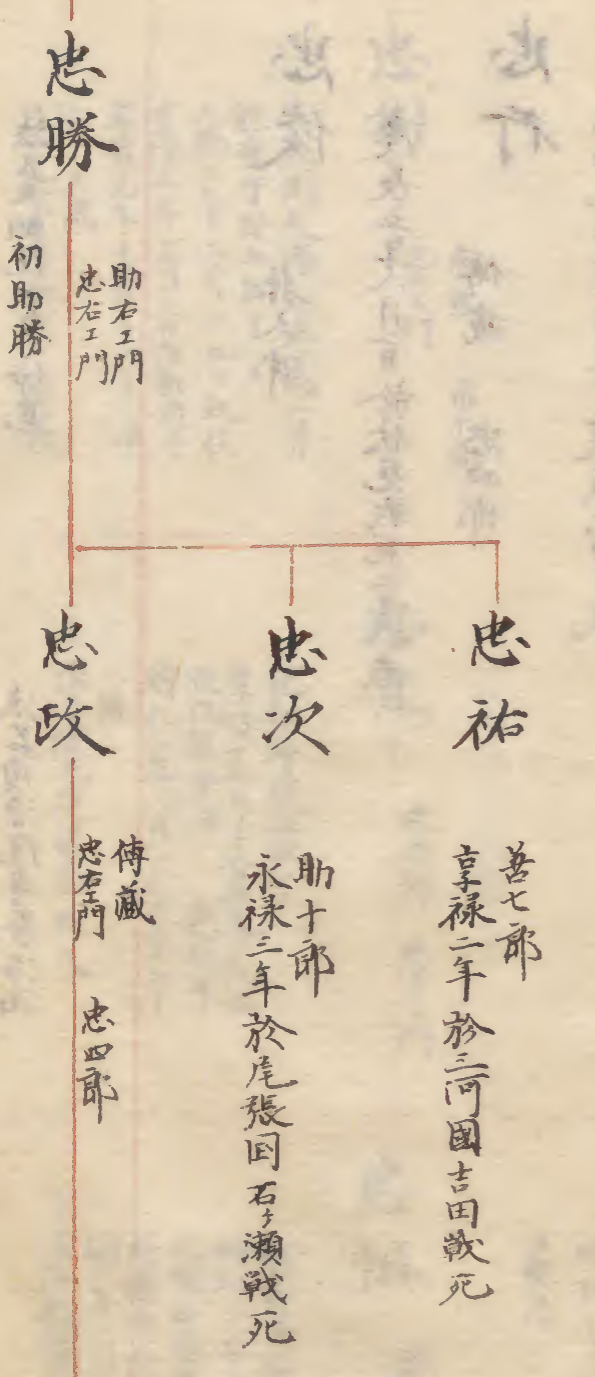 忠勝
助右エ門
忠右エ門
初助勝
忠祐
善七郎
享禄二年於三河國吉田戦死
忠次
助十郎
永禄三年於尾張国石ヶ瀬戦死
忠政
傳蔵
忠右エ門
忠四郎